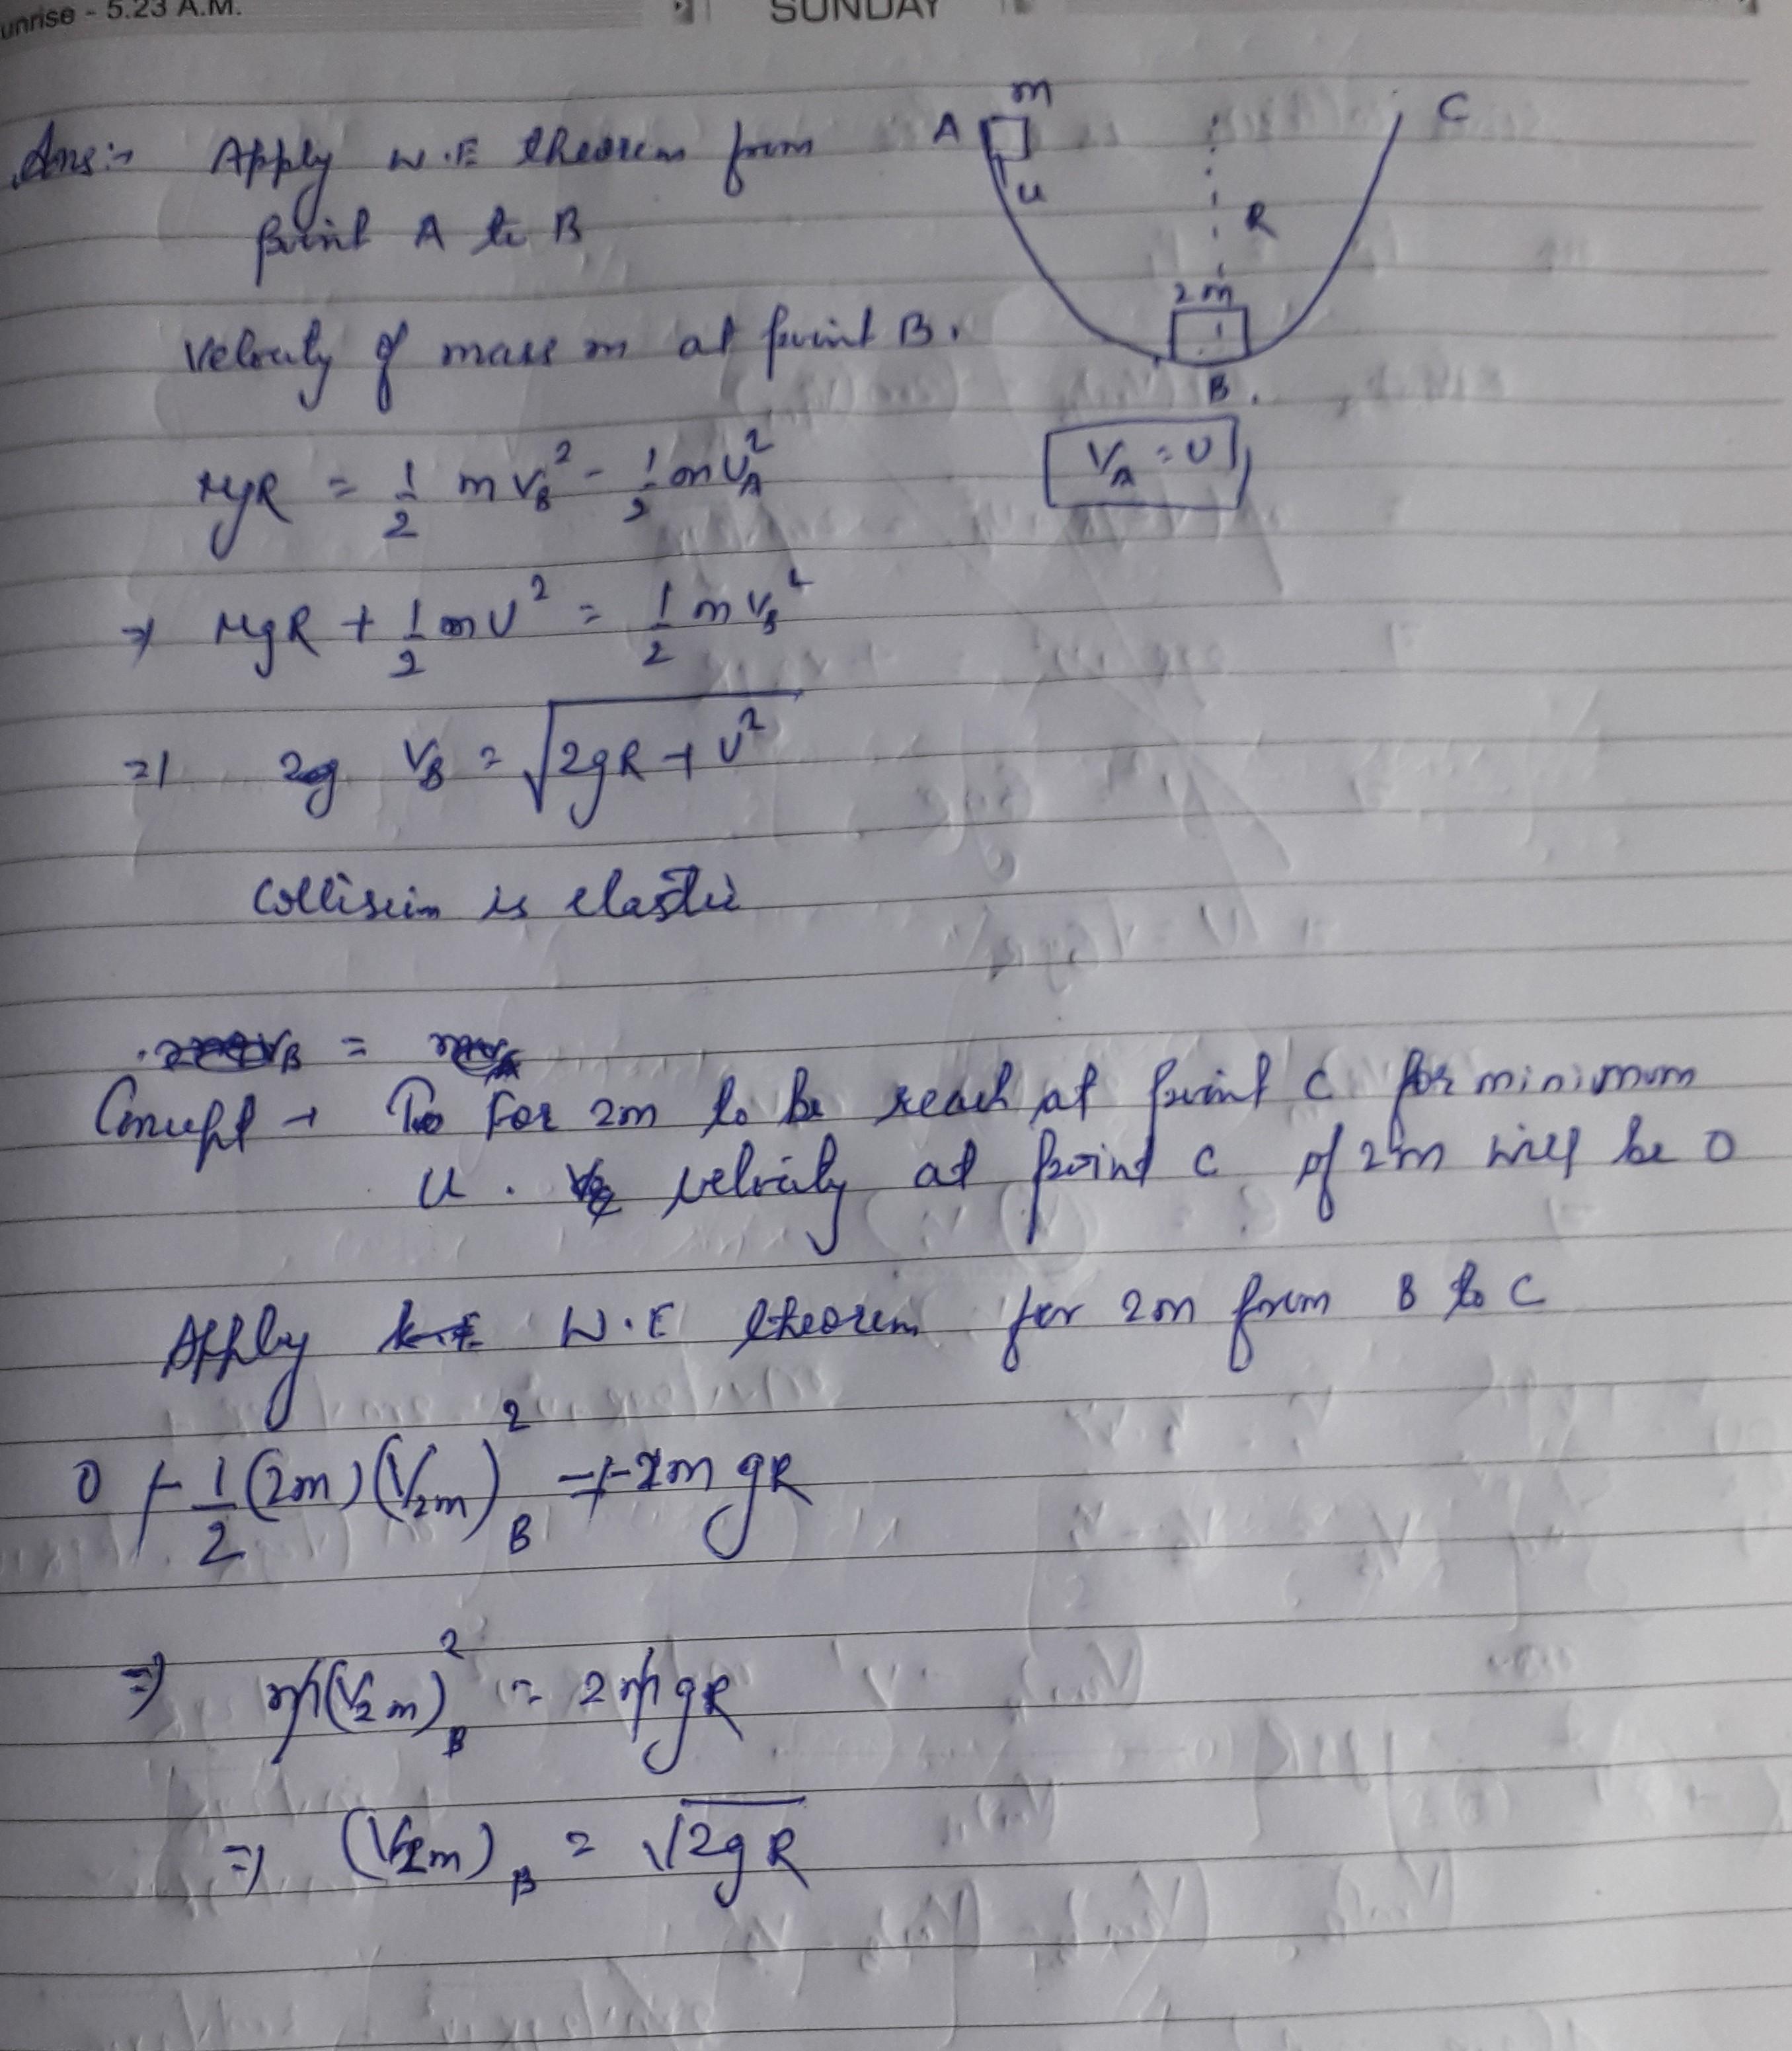 unrise - 5.23 A.M.
SUNDAY
Ans:- Apply W.E theorem from
point A to B
m
A
u
C
R
2m
B.
Velocity of mass m at point B.
MgR = 1/2 m V_B^2 - 1/2 m U_A^2
V_A = U
⇒ MgR + 1/2 m U^2 = 1/2 m V_B^2
=) V_B = √(2gR + U^2)
Collision is elastic
Concept → For 2m to be reach at point C for minimum
u. velocity at point C of 2m will be 0
Apply W.E theorem for 2m from B to C
0 - 1/2 (2m) (V_2m)_B^2 = -2m gR
=) m(V_2m)_B^2 = 2mgR
=) (V_2m)_B = √2gR